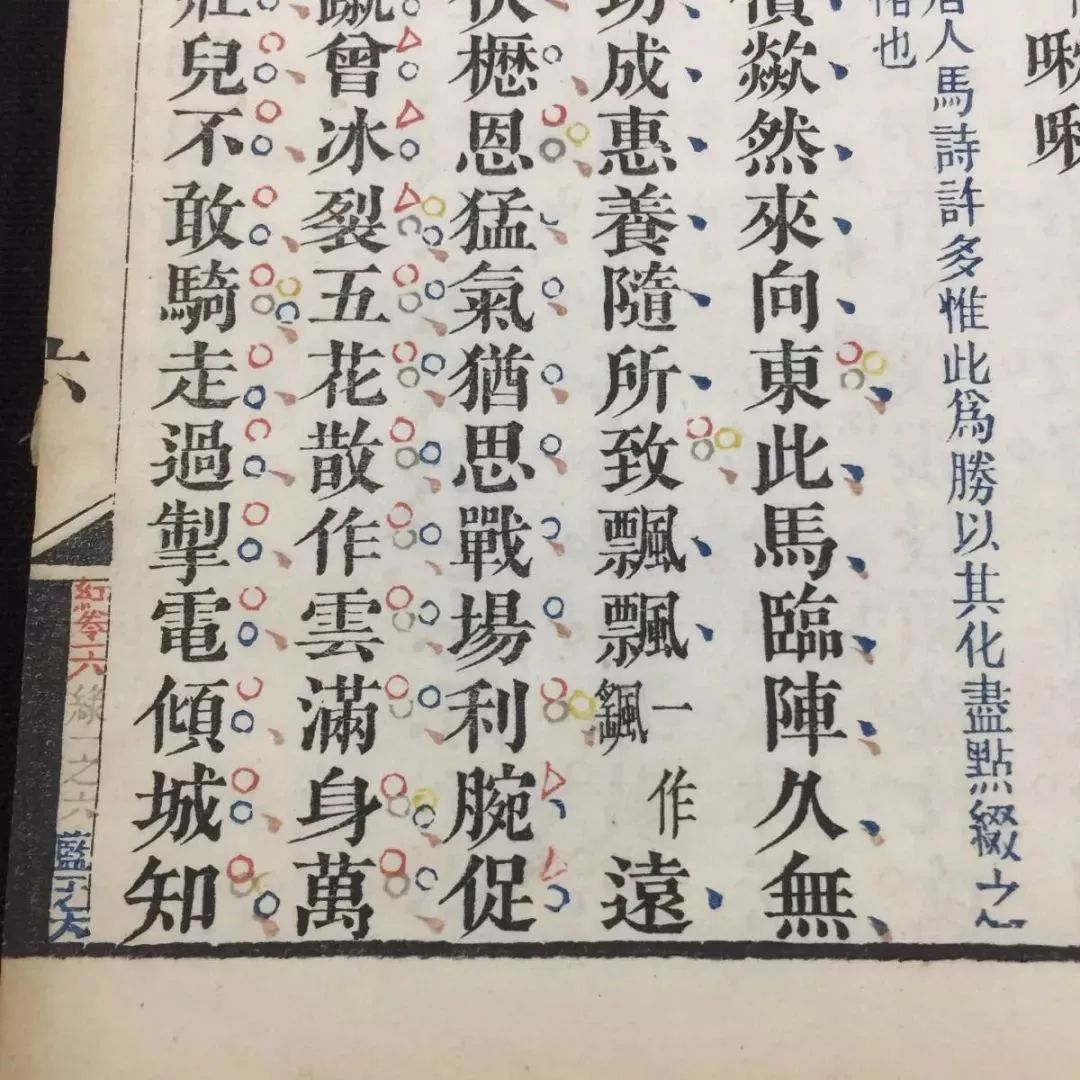 啾啾
人馬詩許多惟此為勝以其化盡點綴之
俗也
價歘然來向東此馬臨陣久無
功成惠養隨所致飄飄一作遠
伏櫪恩猛氣猶思戰場利腕促
蹴曾冰裂五花散作雲滿身萬
壯兒不敢騎走過掣電傾城知
六